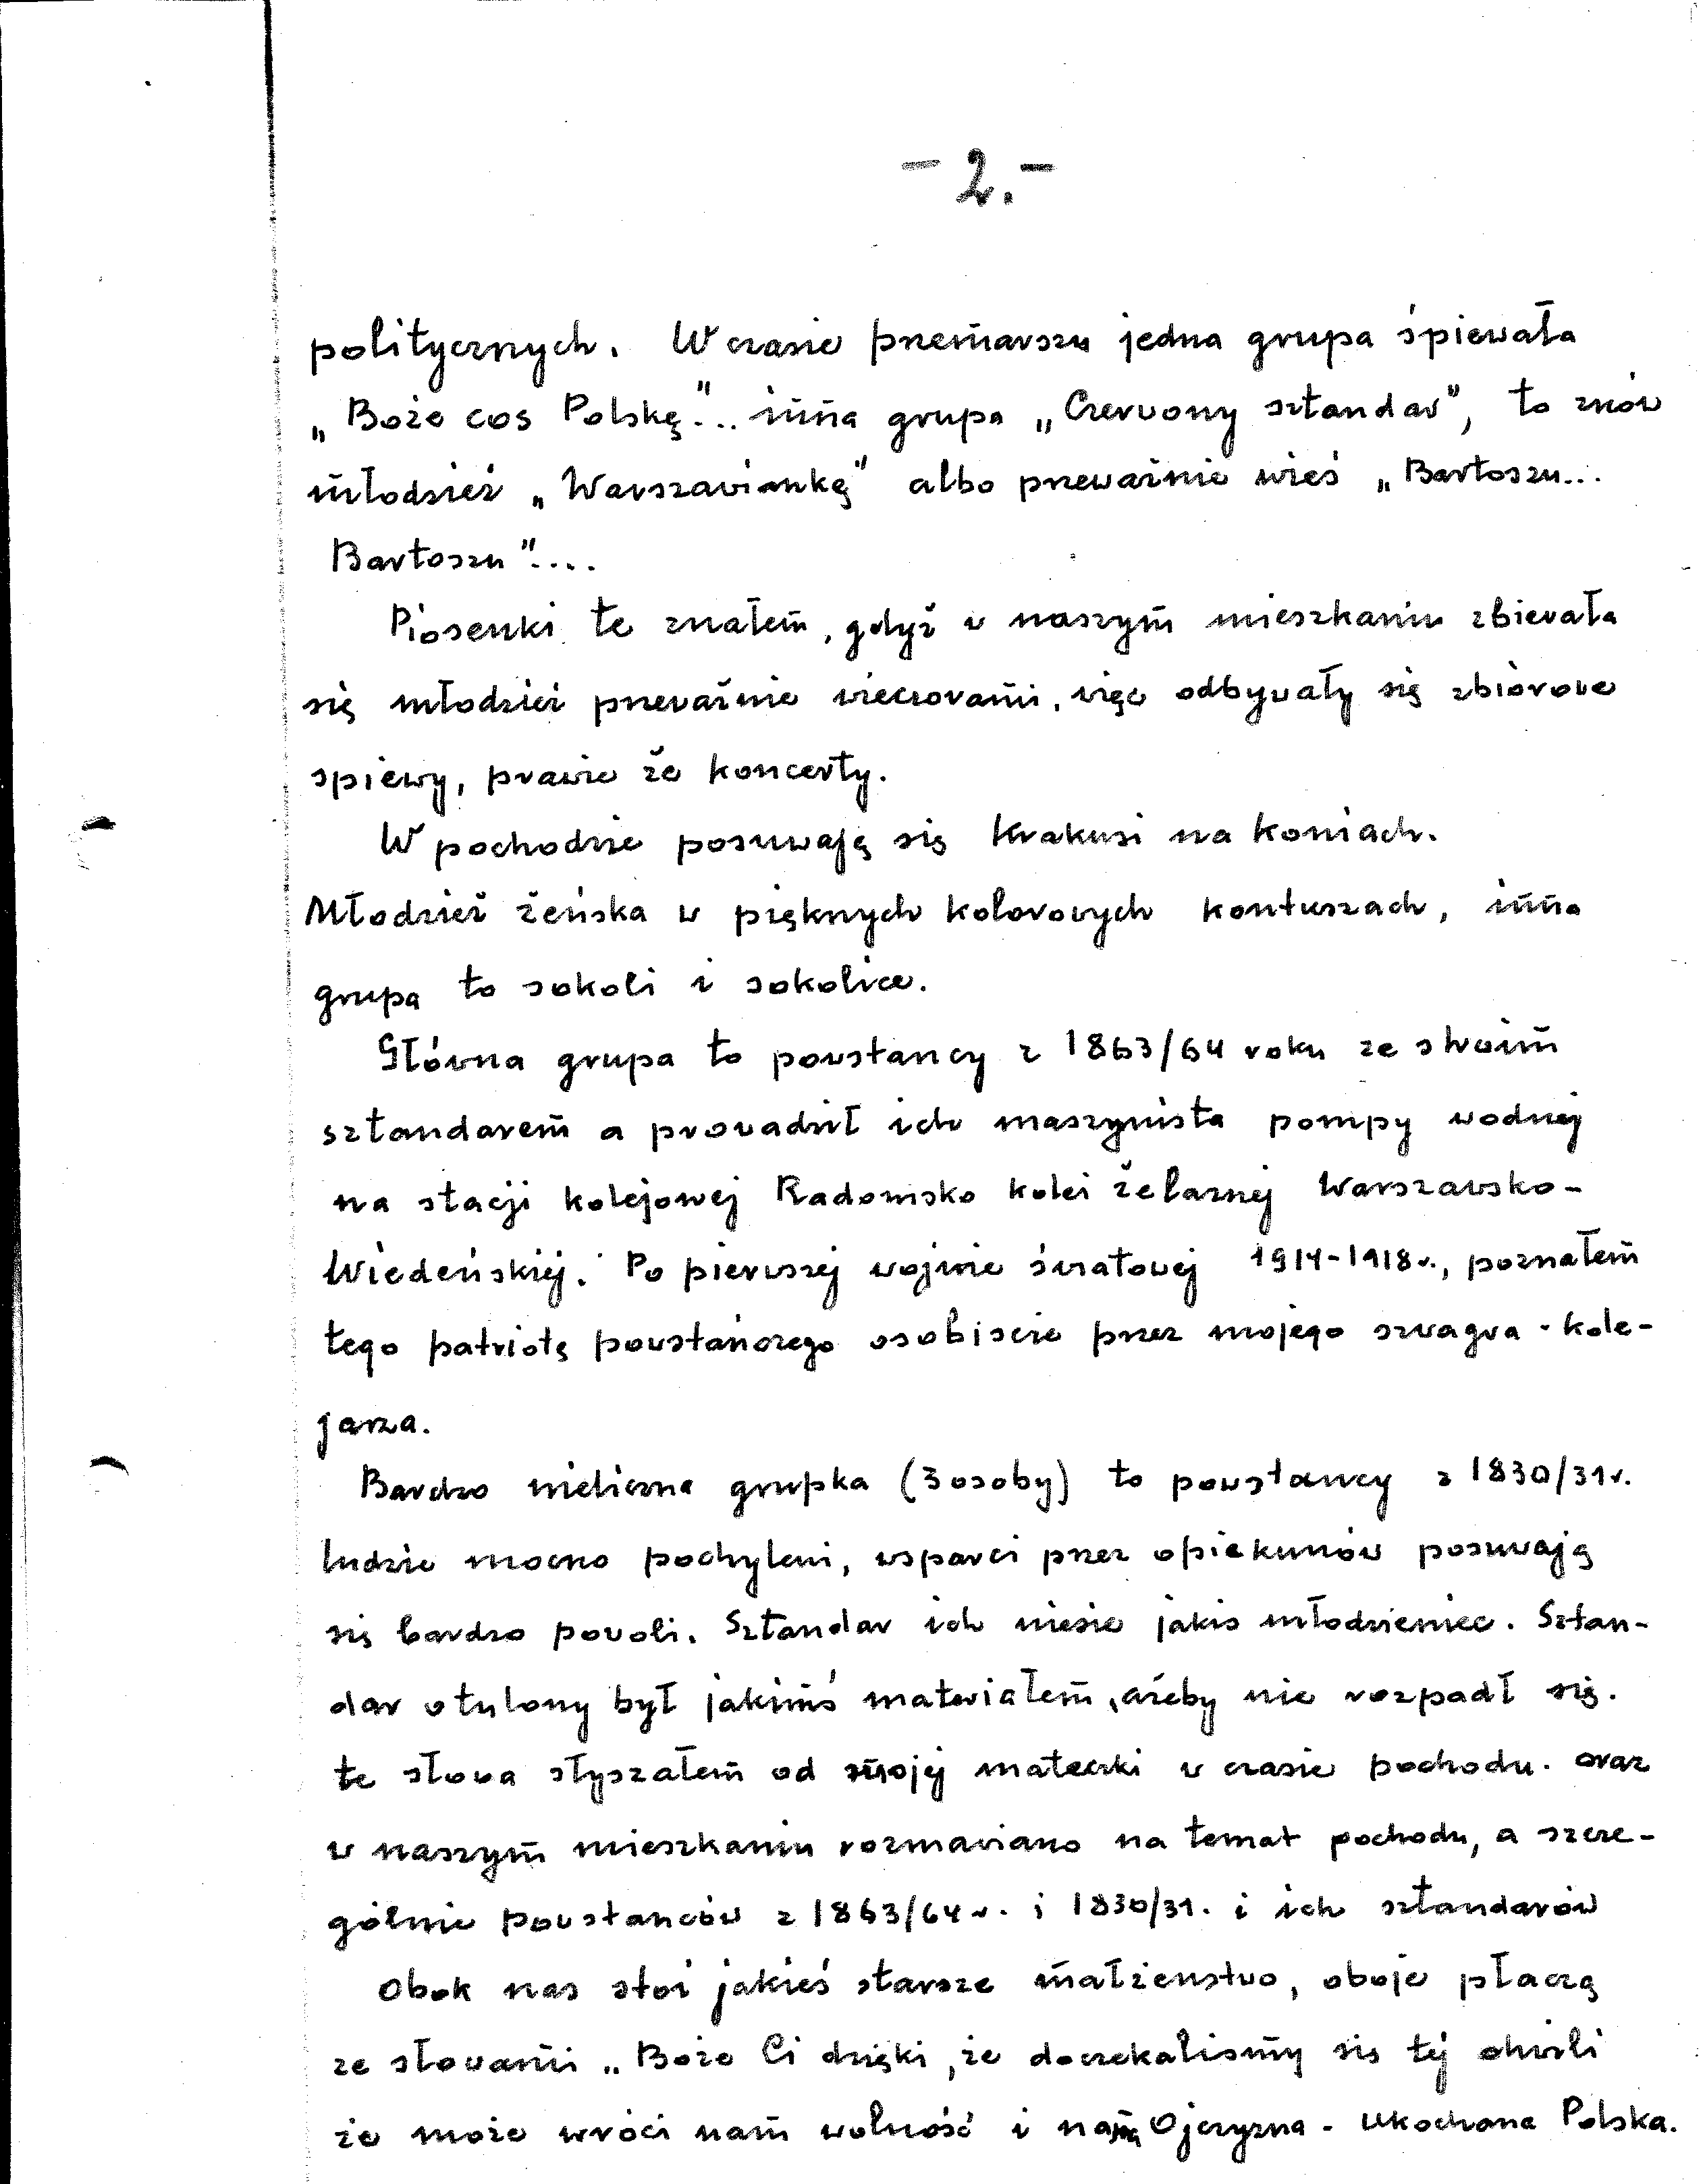 - 2. -
politycznych. W czasie przemarszu jedna grupa śpiewała
„Boże cos Polskę"... inna grupa „Czerwony sztandar", to znów
młodzież „Warszawiankę" albo przeważnie wieś „Bartoszu...
Bartoszu"....
Piosenki te znałem, gdyż w naszym mieszkaniu zbierała
się młodzież przeważnie wieczorami, więc odbywały się zbiorowe
spiewy, prawie że koncerty.
W pochodzie posuwają się Krakusi na koniach.
Młodzież żeńska w pięknych kolorowych kontuszach, inna
grupa to sokoli i sokolice.
Główna grupa to powstancy z 1863/64 roku ze swoim
sztandarem a prowadził ich maszynista pompy wodnej
na stacji kolejowej Radomsko kolei żelaznej Warszawsko-
Wiedeńskiej. Po pierwszej wojnie światowej 1914-1918r., poznałem
tego patriotę powstańczego osobiscie przez mojego szwagra - kole-
jarza.
Bardzo nieliczna grupka (3 osoby) to powstancy z 1830/31r.
ludzie mocno pochyleni, wsparci przez opiekunów posuwają
się bardzo powoli. Sztandar ich niesie jakis młodzieniec. Sztan-
dar otulony był jakimś materiałem, ażeby nie rozpadł się.
te słowa słyszałem od swojej mateczki w czasie pochodu. oraz
w naszym mieszkaniu rozmawiano na temat pochodu, a szcze-
gólnie powstanców z 1863/64 r. i 1830/31. i ich sztandarów
Obok nas stoi jakieś starsze małżenstwo, oboje płaczą
ze słowami „Boże Ci dzięki, że doczekalismy się tej chwili
że może wróci nam wolność i nasza Ojczyzna - ukochana Polska.